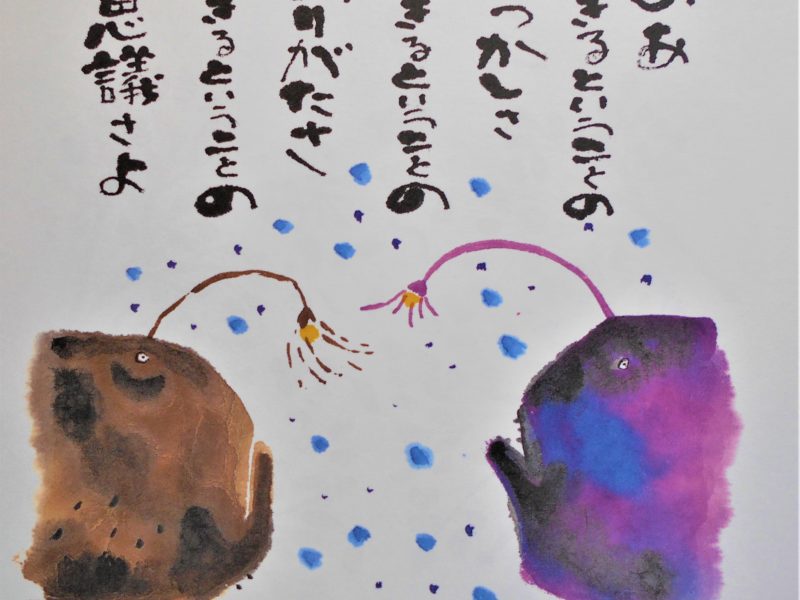 あ
きるということの
つかしさ
きるということの
りがたさ
きるということの
思議さよ